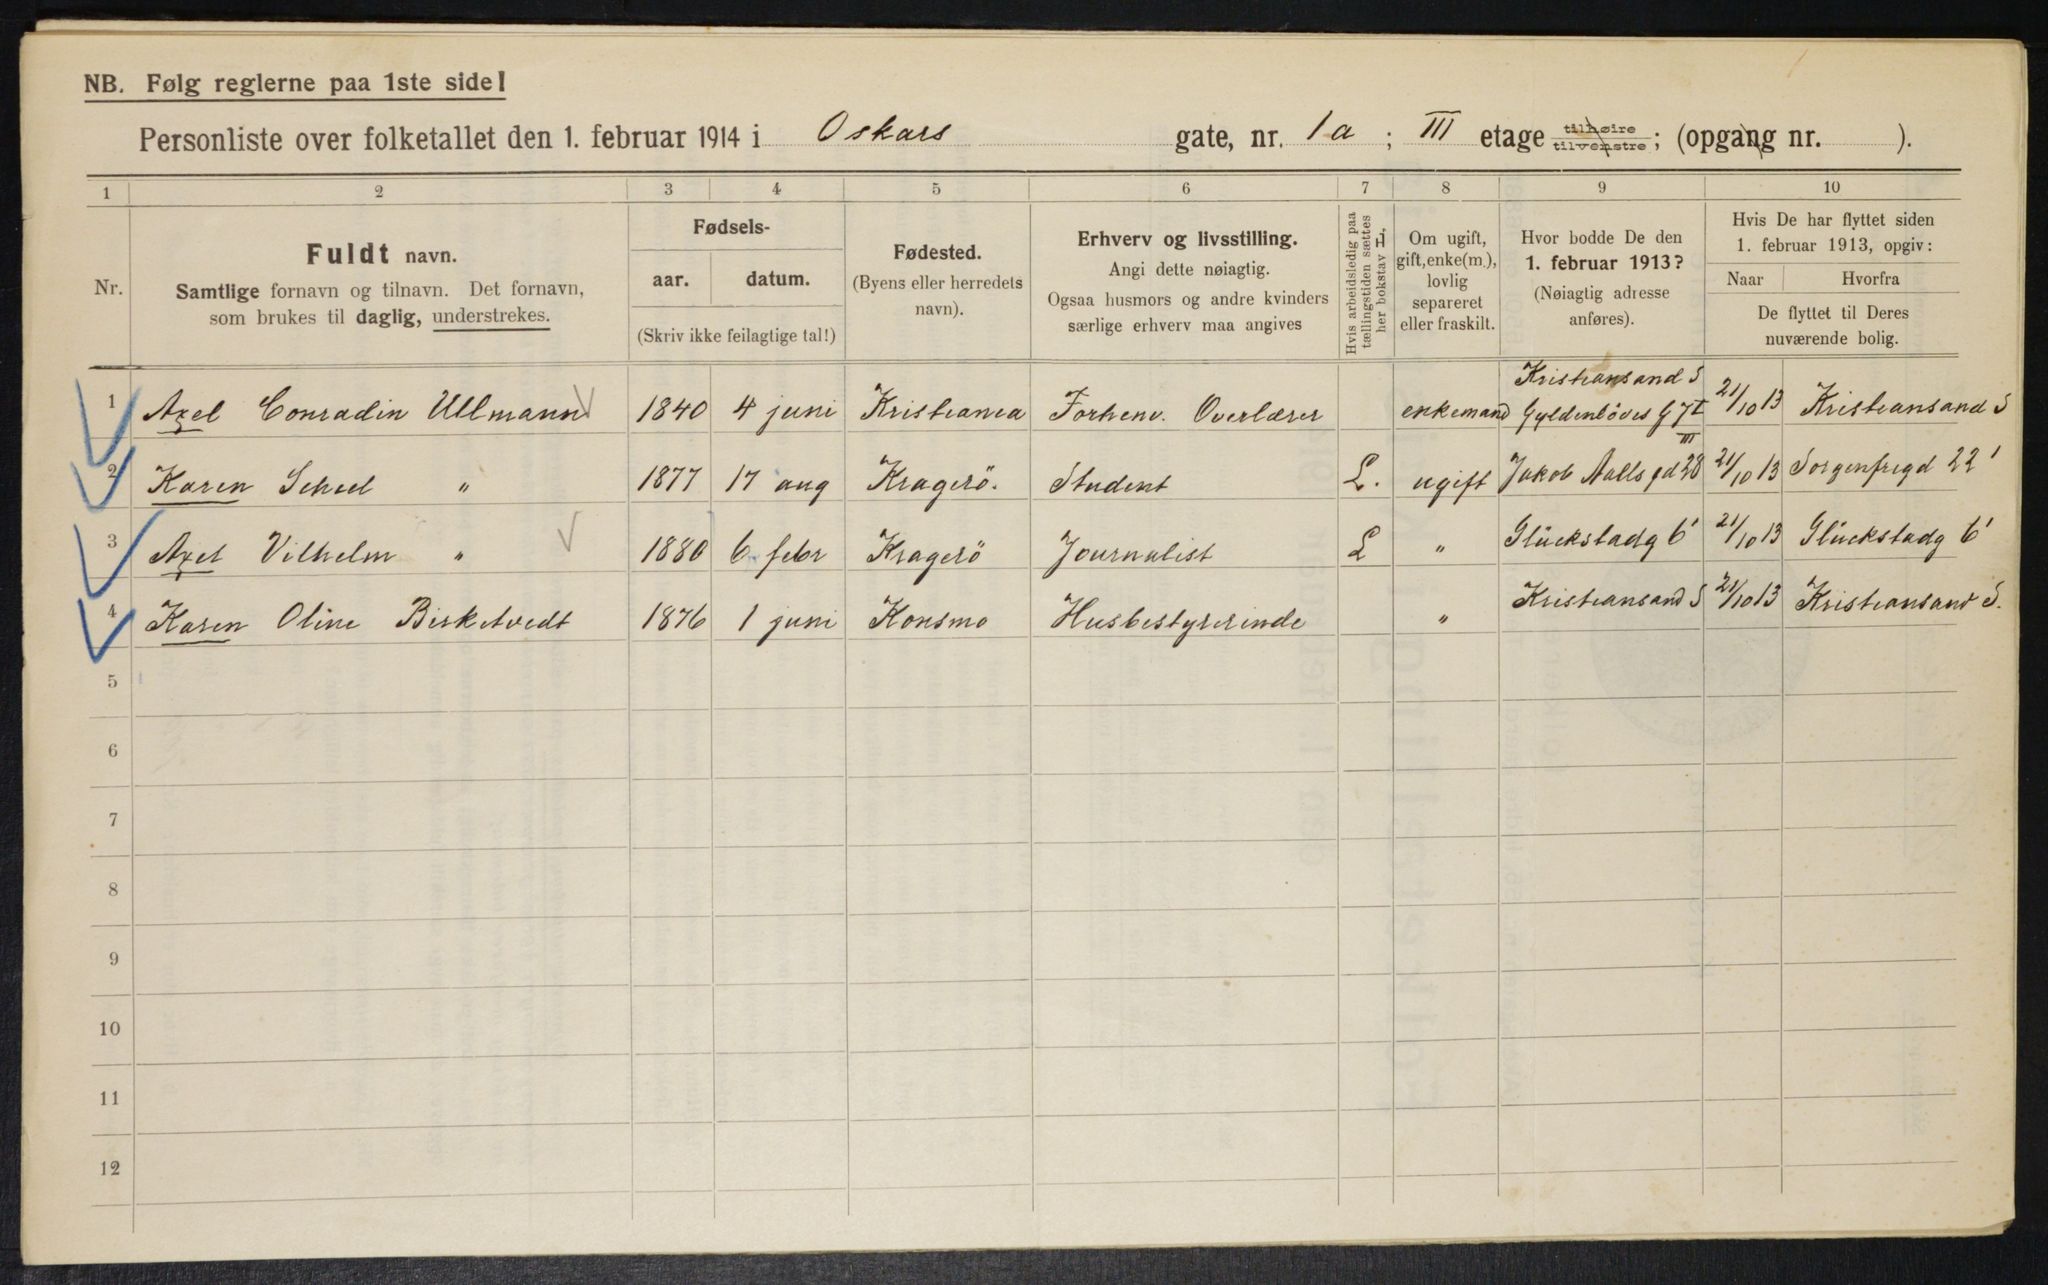 NB. Følg reglerne paa 1ste side!
Personliste over folketallet den 1. februar 1914 i Oskars gate, nr. 1a ; III etage tilhøire tilvenstre ; (opgang nr. ).
1 2 3 4 5 6 7 8 9 10
Nr.
Fuldt navn.
Samtlige fornavn og tilnavn. Det fornavn,
som brukes til daglig, understrekes.
Fødsels-
aar. datum.
(Skriv ikke feilagtige tal!)
Fødested.
(Byens eller herredets
navn).
Erhverv og livsstilling.
Angi dette nøiagtig.
Ogsaa husmors og andre kvinders
særlige erhverv maa angives
Hvis arbeidsledig paa
tællingstiden sættes
her bokstav L.
Om ugift,
gift, enke(m.),
lovlig
separeret
eller fraskilt.
Hvor bodde De den
1. februar 1913?
(Nøiagtig adresse
anføres).
Hvis De har flyttet siden
1. februar 1913, opgiv:
Naar Hvorfra
De flyttet til Deres
nuværende bolig.
1 Axel Conradin Ullmann 1840 4 juni Kristiania Forhenv. Overlærer enkemand Kristiansand S Gyldenløves G 7 I 21/10 13 Kristiansand S
2 Karen Scheel " 1877 17 aug Kragerö. Student L. ugift Jakob Aalls gd 28 III 21/10 13 Sorgenfrigd 22'
3 Axel Vilhelm " 1880 6 febr Kragerö Journalist L " Glückstadg 6' 21/10 13 Glückstadg 6'
4 Karen Oline Birketvedt 1876 1 juni Konsmo Husbestyrerinde " Kristiansand S 21/10 13 Kristiansand S.
5
6
7
8
9
10
11
12